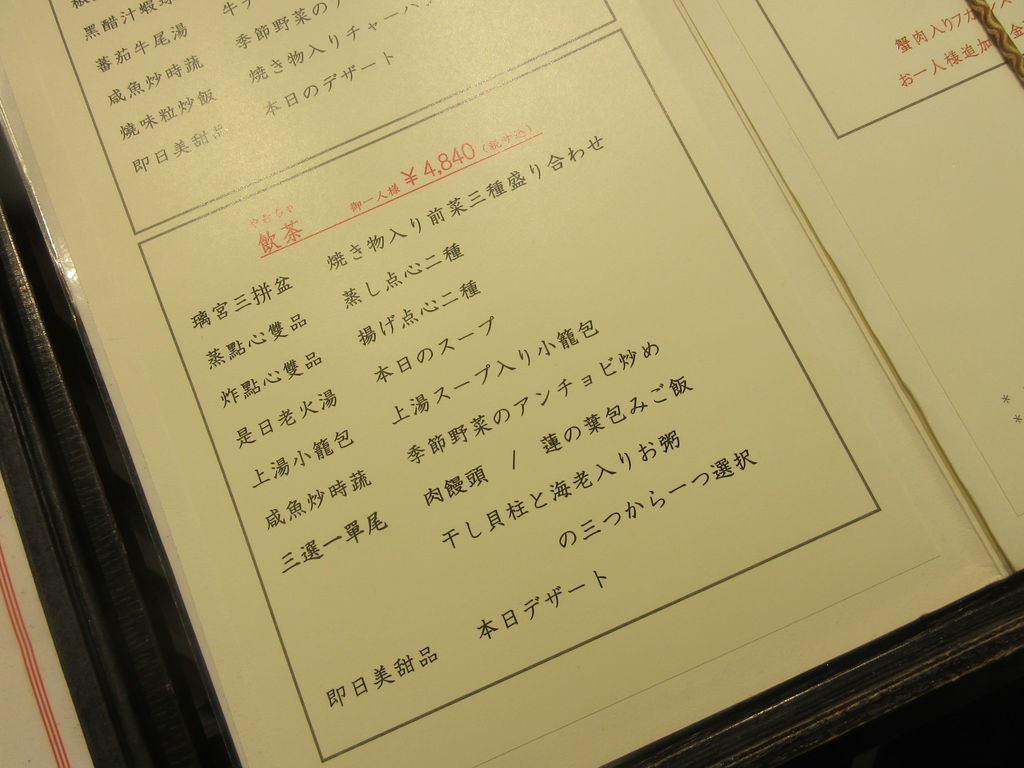 黑醋汁蝦球
蕃茄牛尾湯 牛
咸魚炒時蔬 季節野菜の
燒味粒炒飯 焼き物入りチャーハン
即日美甜品 本日のデザート
やむちゃ
飲茶 御一人様 ¥4,840 (税サ込)
璃宮三拼盆 焼き物入り前菜三種盛り合わせ
蒸點心雙品 蒸し点心二種
炸點心雙品 揚げ点心二種
是日老火湯 本日のスープ
上湯小籠包 上湯スープ入り小籠包
咸魚炒時蔬 季節野菜のアンチョビ炒め
三選一單尾 肉饅頭 / 蓮の葉包みご飯
干し貝柱と海老入りお粥
の三つから一つ選択
即日美甜品 本日デザート
蟹肉入りフカ
お一人様追加
*
*